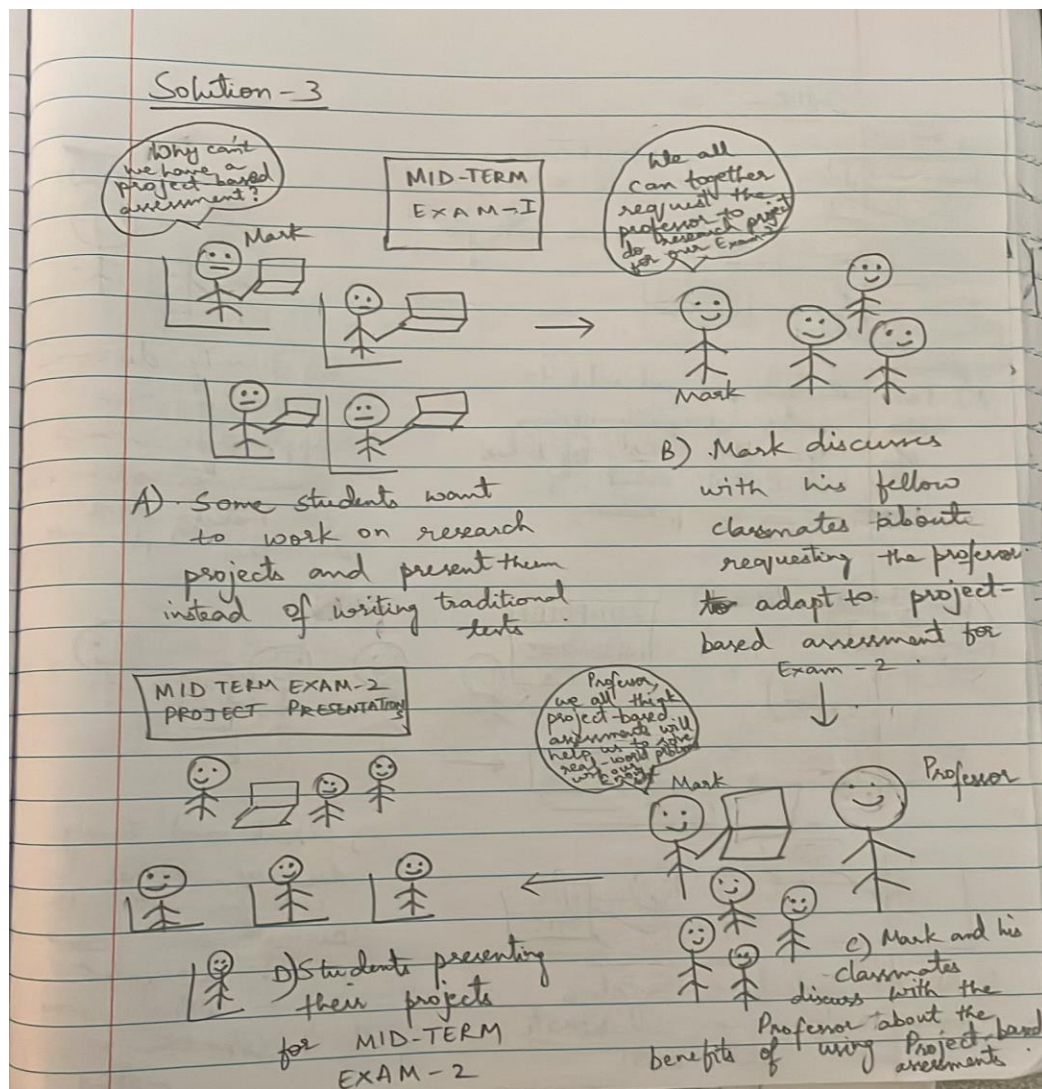 Solution-3
Why can't
we have a
project based
assessment?
Mark
MID-TERM
EXAM-I
We all
can together
request the
professor to
do research project
for our Exam-2
Mark
A) Some students want
to work on research
projects and present them
instead of writing traditional
tests.
B) Mark discusses
with his fellow
classmates about
requesting the professor
to adapt to project-
based assessment for
Exam-2.
Professor,
we all think
project-based
assessments will
help us to solve
real-world
Mark
Professor
C) Mark and his
classmates
discuss with the
Professor about the
benefits of using Project-based
assessments.
MID TERM EXAM-2
PROJECT PRESENTATIONS
D) Students presenting
their projects
for MID-TERM
EXAM-2